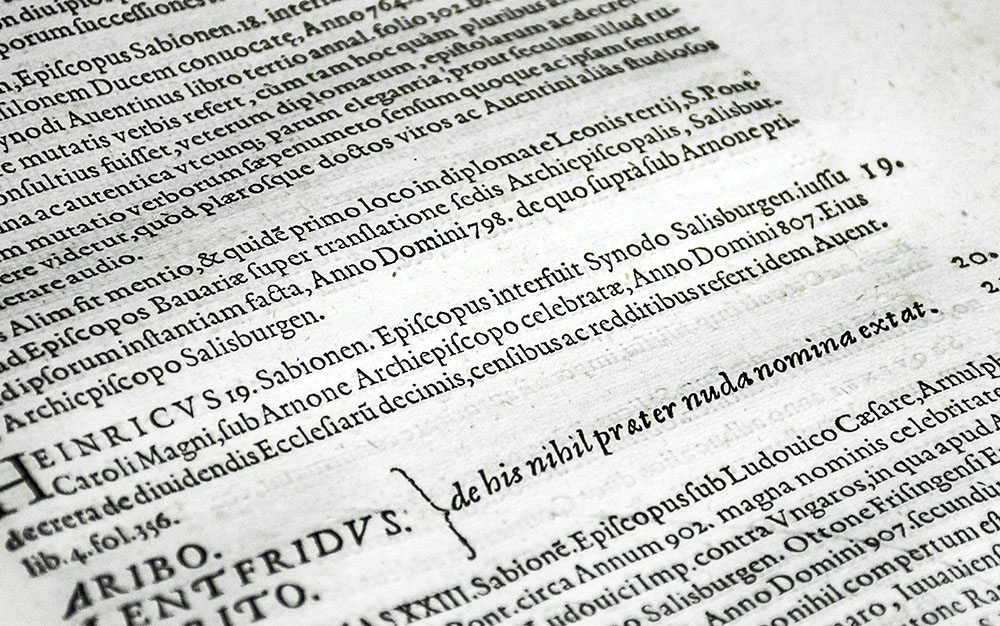 porum successiones
n, Epiſcopus Sabionen. 18. inter
ſilonem Ducem conuocatę, Anno 764.
ynodi Auentinus libro tertio annal. folio 302
e mutatis verbis refert, cùm tam hoc quàm pluribus
onſultius fuiſſet, veterum diplomatum, epiſtolarum ac decre
na ac autentica vtcunq; parum elegantia, prout ſeculum illud tu-
m mutatio verborum ſæpenumero ſenſum quoque ac ipſam ſenten.
ere videtur, quòd plæroſque doctos viros ac Auentini aliâs ſtudioſos
erare audio.
s Alim fit mentio, & quidẽ primo loco in diplomate Leonis tertij, S. Pont.
ad Epiſcopos Bauariæ ſuper tranſlatione ſedis Archiepiſcopalis, Salisbur.
d ipſorum inſtantiam facta, Anno Domini 798. de quo ſuprà ſub Arnone pri-
Archiepiſcopo Salisburgen.
HEINRICVS 19. Sabionen. Epiſcopus interfuit Synodo Salisburgen. iuſſu 19.
Caroli Magni, ſub Arnone Archiepiſcopo celebratæ, Anno Domini 807. Eius
decreta de diuidendis Eccleſiarũ decimis, cenſibus ac redditibus refert idem Auent.
lib. 4. fol. 356.
ARIBO. 20.
LENTFRIDVS. } de his nihil præter nuda nomina extat.
RITO.
AS XXIII. Sabionẽ. Epiſcopus ſub Ludouico Cæſare, Arnulph
Pont. circa Annum 902. magna nominis celebritate
Ludouici Imp. contra Vngaros, in qua apud A
Salisburgen. Ottone Friſingenſi E
Anno Domini 907. ſecundu
nihil compertum eſt